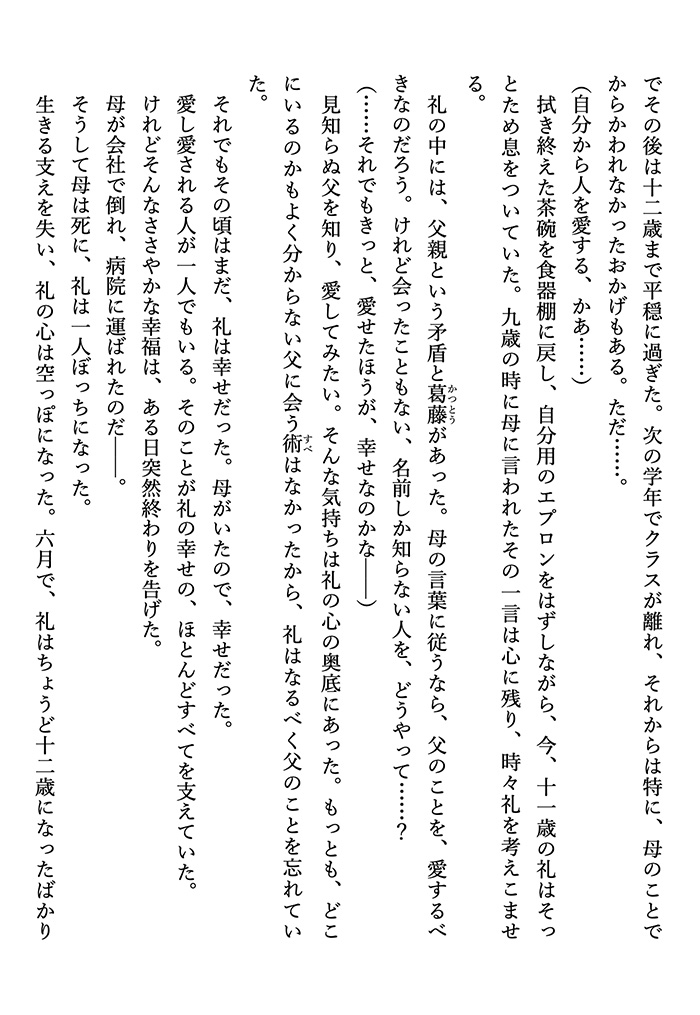 でその後は十二歳まで平穏に過ぎた。次の学年でクラスが離れ、それからは特に、母のことで
からかわれなかったおかげもある。ただ……。
(自分から人を愛する、かあ……)
拭き終えた茶碗を食器棚に戻し、自分用のエプロンをはずしながら、今、十一歳の礼はそっ
とため息をついていた。九歳の時に母に言われたその一言は心に残り、時々礼を考えこませ
る。
礼の中には、父親という矛盾と葛藤かっとうがあった。母の言葉に従うなら、父のことを、愛するべ
きなのだろう。けれど会ったこともない、名前しか知らない人を、どうやって……?
(……それでもきっと、愛せたほうが、幸せなのかな――)
見知らぬ父を知り、愛してみたい。そんな気持ちは礼の心の奥底にあった。もっとも、どこ
にいるのかもよく分からない父に会う術すべはなかったから、礼はなるべく父のことを忘れてい
た。
それでもその頃はまだ、礼は幸せだった。母がいたので、幸せだった。
愛し愛される人が一人でもいる。そのことが礼の幸せの、ほとんどすべてを支えていた。
けれどそんなささやかな幸福は、ある日突然終わりを告げた。
母が会社で倒れ、病院に運ばれたのだ――。
そうして母は死に、礼は一人ぼっちになった。
生きる支えを失い、礼の心は空っぽになった。六月で、礼はちょうど十二歳になったばかり